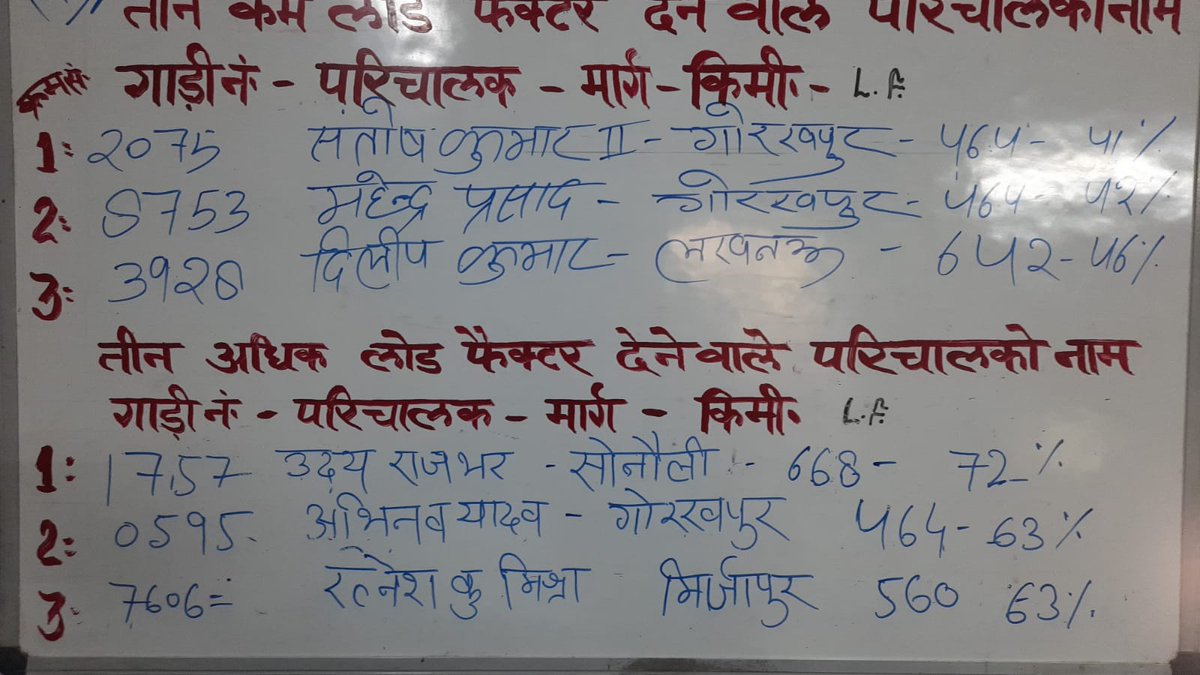 तीन कम लोड फैक्टर देने वाले परिचालको नाम
क्रम सं. गाड़ी नं. - परिचालक - मार्ग - किमी. - L.F.
1: 2075 संतोष कुमार II - गोरखपुर - 464 - 41%
2: 8753 महेन्द्र प्रसाद - गोरखपुर - 464 - 42%
3: 3928 दिलीप कुमार - लखनऊ - 642 - 46%
तीन अधिक लोड फैक्टर देने वाले परिचालको नाम
गाड़ी नं. - परिचालक - मार्ग - किमी. L.F.
1: 1757 उदय राजभर - सोनौली - 668 - 72%
2: 0595 अभिनव यादव - गोरखपुर 464 - 63%
3: 7606= रत्नेश कु मिश्रा मिर्जापुर 560 63%